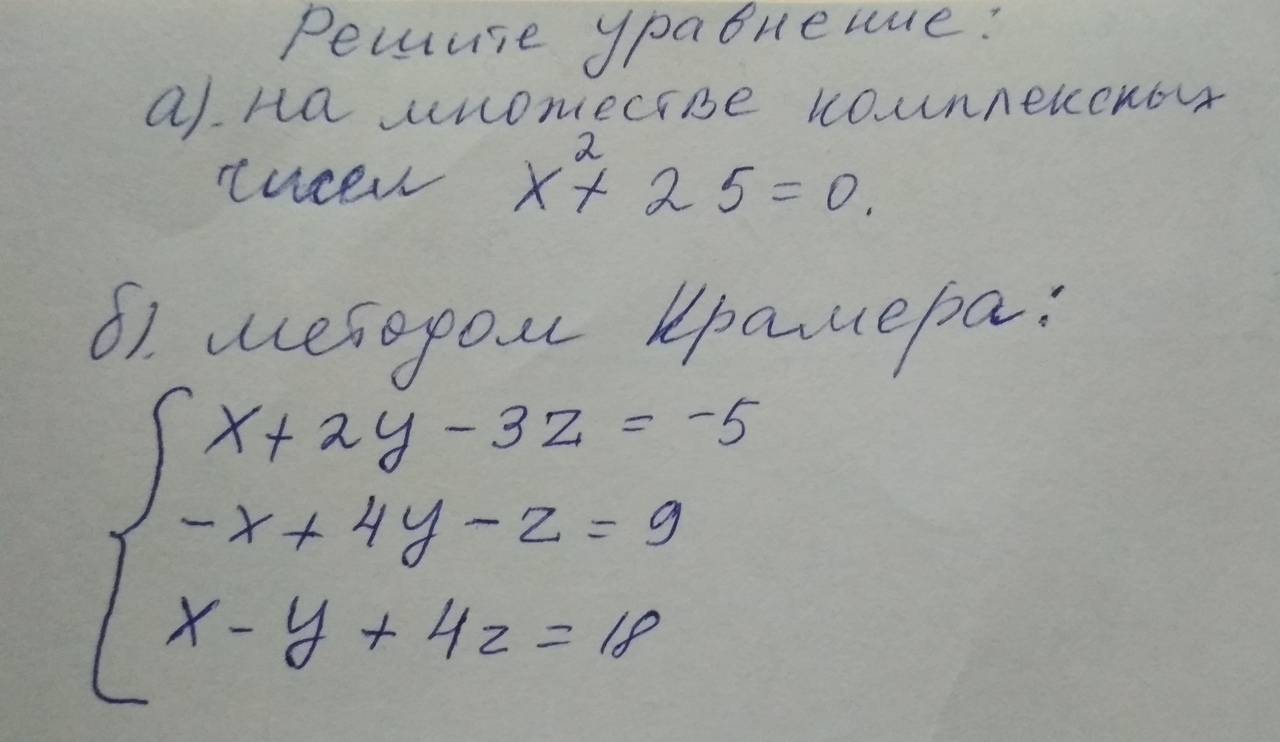 Решите уравнение:
а). на множестве комплексных
чисел x² + 25 = 0.
б). методом Крамера:
x + 2y - 3z = -5
-x + 4y - z = 9
x - y + 4z = 18